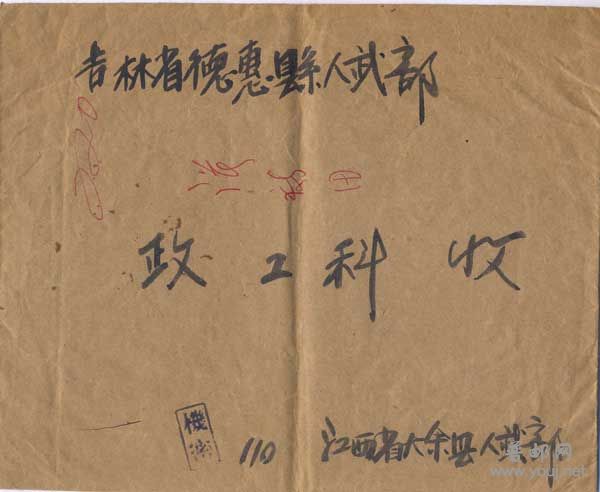 吉林省德惠縣人武部
政工科 收
機密
110 江西省大余县人武部
普邮网
www.youj.net